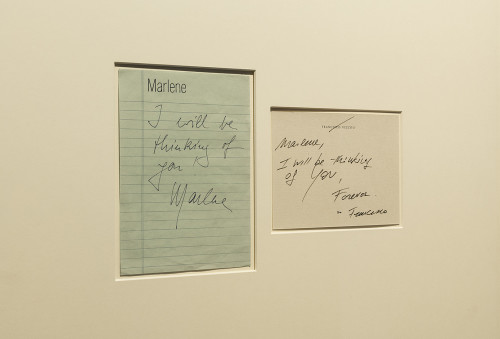 Marlene
I will be
thinking of
you
Marlene
FRANCESCO VEZZOLI
Marlene,
I will be thinking
of you,
Forever
~ Francesco